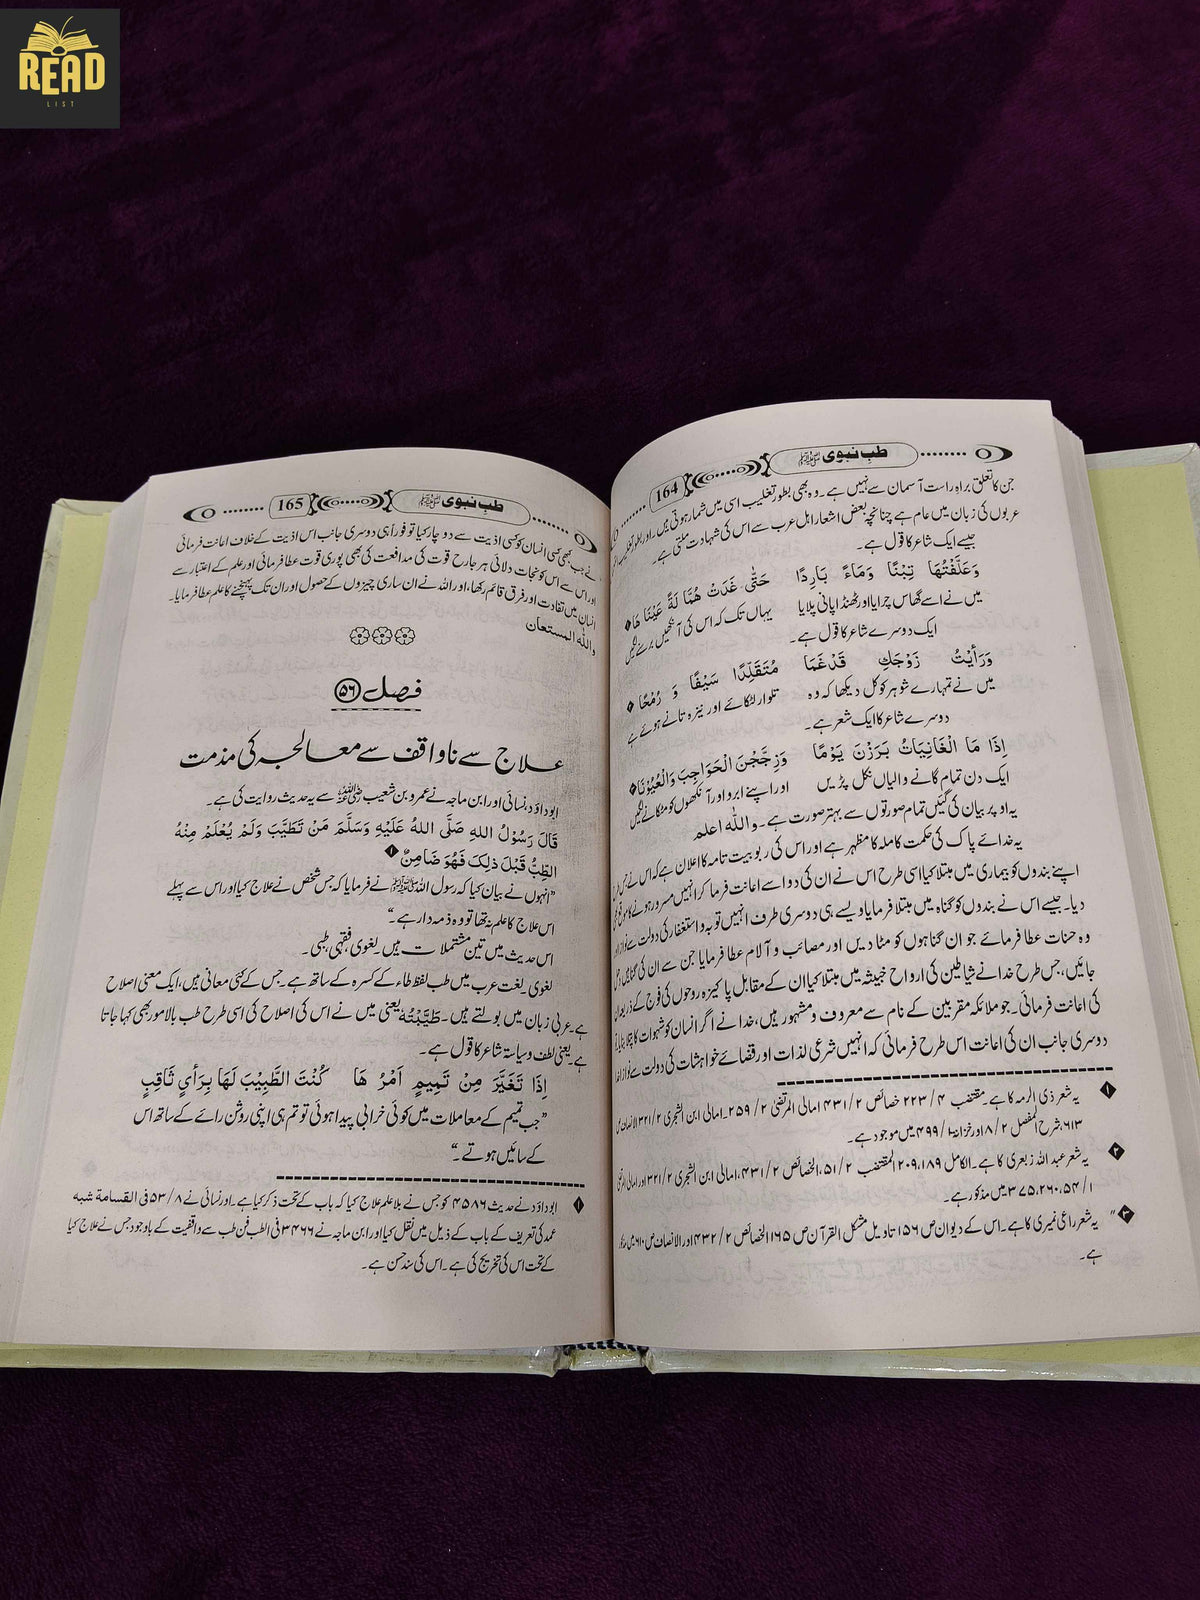 READ
LIST
طب نبوی ﷺ
164
جن کا تعلق براہ راست آسمان سے نہیں ہے۔ وہ بھی بطور تغلیب اسی میں شمار ہوتی ہیں۔ اور بطور
عربوں کی زبان میں عام ہے چنانچہ بعض اشعار اہل عرب سے اس کی شہادت ملتی ہے۔
جیسے ایک شاعر کا قول ہے۔
وَعَلَّفْتُهَا تِبْنًا وَمَاءً بَارِدًا حَتّٰى غَدَتْ هَمَّالَةً عَيْنَاهَا
میں نے اسے گھاس چرایا اور ٹھنڈا پانی پلایا یہاں تک کہ اس کی آنکھیں برسنے لگیں
ایک دوسرے شاعر کا قول ہے۔
وَرَأَيْتُ زَوْجَكِ قَدْغَمَا مُتَقَلِّدًا سَيْفًا وَ رُمْحًا
میں نے تمہارے شوہر کو کل دیکھا کہ وہ تلوار لٹکائے اور نیزہ تانے ہوئے ہے
دوسرے شاعر کا ایک شعر ہے۔
إِذَا مَا الْغَانِيَاتُ بَرَزْنَ يَوْمًا وَزَجَّجْنَ الْحَوَاجِبَ وَالْعُيُوْنَا
ایک دن تمام گانے والیاں نکل پڑیں اور اپنے ابرو اور آنکھوں کو مٹکانے لگیں
یہ اوپر بیان کی گئیں تمام صورتوں سے بہتر صورت ہے۔ واللہ اعلم
یہ خدائے پاک کی حکمت کاملہ کا مظہر ہے اور اس کی ربوبیت تامہ کا اعلان ہے کہ اس نے جس طرح
اپنے بندوں کو بیماری میں مبتلا کیا اسی طرح اس نے ان کی دوا سے اعانت فرما کر انہیں مسرور ہونے کا موقع
دیا۔ جیسے اس نے بندوں کو گناہ میں مبتلا فرمایا ویسے ہی دوسری طرف انہیں توبہ و استغفار کی دولت سے نوازا اور
وہ حسنات عطا فرمائے جو ان گناہوں کو مٹا دیں اور مصائب و آلام عطا فرمایا جن سے ان کی گناہ
جائیں، جس طرح خدا نے شیاطین کی ارواح خبیثہ میں مبتلا کیا ان کے مقابل پاکیزہ روحوں کی فوج کے ذریعہ ان
کی اعانت فرمائی۔ جو ملائکہ مقربین کے نام سے معروف و مشہور ہیں، خدا نے اگر انسان کو شہوات کا
دوسری جانب ان کی اعانت اس طرح فرمائی کہ انہیں شرعی لذات اور قضائے خواہشات کی دولت سے نوازا
۱ یہ شعر ذی الرمہ کا ہے۔ مقتضب ۴/ ۲۲۳ خصائص ۲/ ۴۳۱ امالی المرتضیٰ ۲/ ۲۵۹۔ امالی ابن الشجری ۲/ ۳۲۱ الانصاف ص
۶۱۳، شرح المفصل ۲/ ۸ اور خزانہ ۱/ ۴۹۹ میں موجود ہے۔
۲ یہ شعر عبد اللہ زبعری کا ہے۔ الکامل ۱۸۹، ۲۰۹، المقتضب ۲/ ۵۱، الخصائص ۲/ ۴۳۱، امالی ابن الشجری ۲/ ۳۲۱ اور امالی
۱/ ۵۴، ۲۶۰، ۳۷۵ میں مذکور ہے۔
۳ یہ شعر راعی نمیری کا ہے۔ اس کے دیوان ص ۱۵۶ تاویل مشکل القرآن ص ۱۶۵ الخصائص ۲/ ۴۳۲ اور الانصاف ص ۶۱۰ میں
ہے۔
طب نبوی ﷺ
165
نے جب کبھی کسی انسان کو کسی اذیت سے دوچار کیا تو فوراً ہی دوسری جانب اس اذیت کے خلاف اعانت فرمائی
اور اس سے اس کو نجات دلائی ہر جارح قوت کی مدافعت کی بھی پوری قوت عطا فرمائی اور علم کے اعتبار سے
انسان میں تفاوت اور فرق قائم رکھا، اور اللہ نے ان ساری چیزوں کے حصول اور ان تک پہنچنے کا علم عطا فرمایا۔
واللہ المستعان
فصل ۵۶
علاج سے ناواقف سے معالجہ کی مذمت
ابوداؤد، نسائی اور ابن ماجہ نے عمرو بن شعیب رضی اللہ عنہ سے یہ حدیث روایت کی ہے۔
قَالَ رَسُوْلُ اللهِ صَلَّى اللهُ عَلَيْهِ وَسَلَّمَ مَنْ تَطَبَّبَ وَلَمْ يُعْلَمْ مِنْهُ
الطِّبُّ قَبْلَ ذٰلِكَ فَهُوَ ضَامِنٌ ۱
”انہوں نے بیان کیا کہ رسول اللہ ﷺ نے فرمایا کہ جس شخص نے علاج کیا اور اس سے پہلے
اس علاج کا علم نہ تھا تو وہ ذمہ دار ہے۔“
اس حدیث میں تین مشتملات ہیں۔ لغوی، فقہی، طبی۔
لغوی۔ لغت عرب میں طب لفظ طاء کے کسرہ کے ساتھ ہے۔ جس کے کئی معانی ہیں، ایک معنی اصلاح
ہے۔ عربی زبان میں بولتے ہیں۔ طَبَّبْتُهُ یعنی میں نے اس کی اصلاح کی اسی طرح طب بالامور بھی کہا جاتا
ہے۔ یعنی لطف و سیاستۃ شاعر کا قول ہے۔
إِذَا تَغَيَّرَ مِنْ تَمِيمٍ اَمْرُ هَا كُنْتَ الطَّبِيْبَ لَهَا بِرَأيٍ ثَاقِبٍ
”جب تمیم کے معاملات میں کوئی خرابی پیدا ہوئی تو تم ہی اپنی روشن رائے کے ساتھ اس
کے سائیں ہوتے۔“
۱ ابوداؤد نے حدیث ۴۵۸۶ کو جس نے بلا علم علاج کیا کہ باب کے تحت ذکر کیا ہے۔ اور نسائی نے ۸/ ۵۳ فی القسامة شبه
عمد کی تعریف کے باب کے ذیل میں نقل کیا اور ابن ماجہ نے ۳۴۶۶ فی الطب فن طب سے واقفیت کے باوجود جس نے علاج کیا
کے تحت اس کی تخریج کی ہے۔ اس کی سند حسن ہے۔